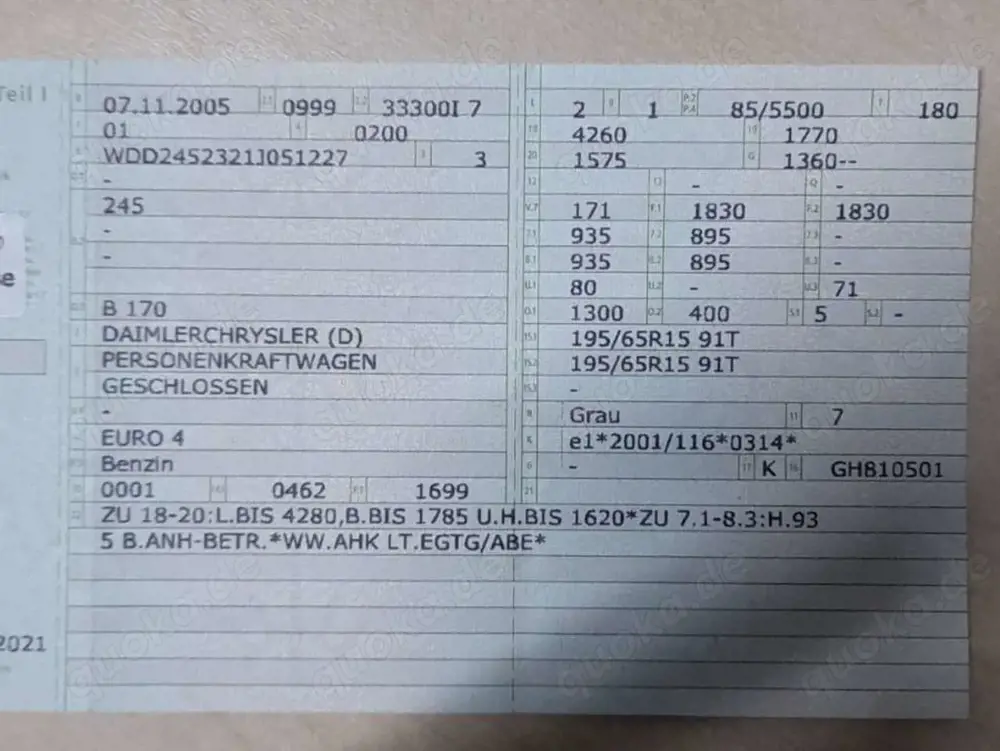 Teil I
07.11.2005 0999 33300I 7
01 0200
WDD2452321J051227 3
-
245
-
-
B 170
DAIMLERCHRYSLER (D)
PERSONENKRAFTWAGEN
GESCHLOSSEN
-
EURO 4
Benzin
0001 0462 1699
2 1 85/5500 180
4260 1770
1575 1360--
- -
171 1830 1830
935 895 -
935 895 -
80 - 71
1300 400 5 -
195/65R15 91T
195/65R15 91T
-
Grau 7
e1*2001/116*0314*
- K GH810501
ZU 18-20:L.BIS 4280,B.BIS 1785 U.H.BIS 1620*ZU 7.1-8.3:H.93
5 B.ANH-BETR.*WW.AHK LT.EGTG/ABE*
2021
quoka.de